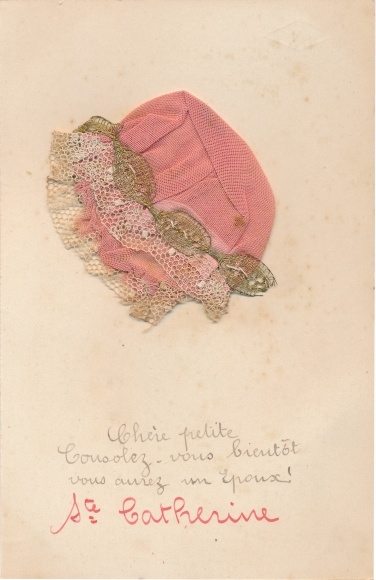 Chère petite
Consolez-vous bientôt
vous aurez un Epoux!
Ste Catherine